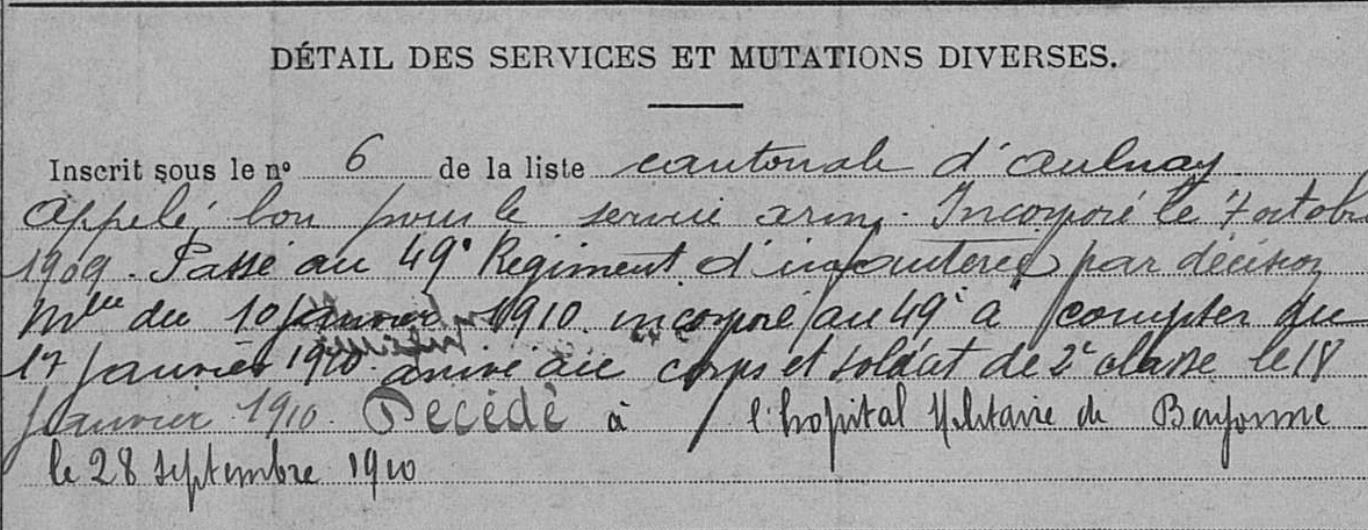 DÉTAIL DES SERVICES ET MUTATIONS DIVERSES.
Inscrit sous le nº 6 de la liste cantonale d'Aulnay
Appelé, bon pour le service armé. Incorporé le 7 octobre
1909. Passé au 49e Régiment d'infanterie par décision
Mlle du 10 janvier 1910. incorporé au 49e à compter du
17 janvier 1910. arrivé au corps et soldat de 2e classe le 18
Janvier 1910. Décédé à l'hopital Militaire de Bayonne
le 28 septembre 1910